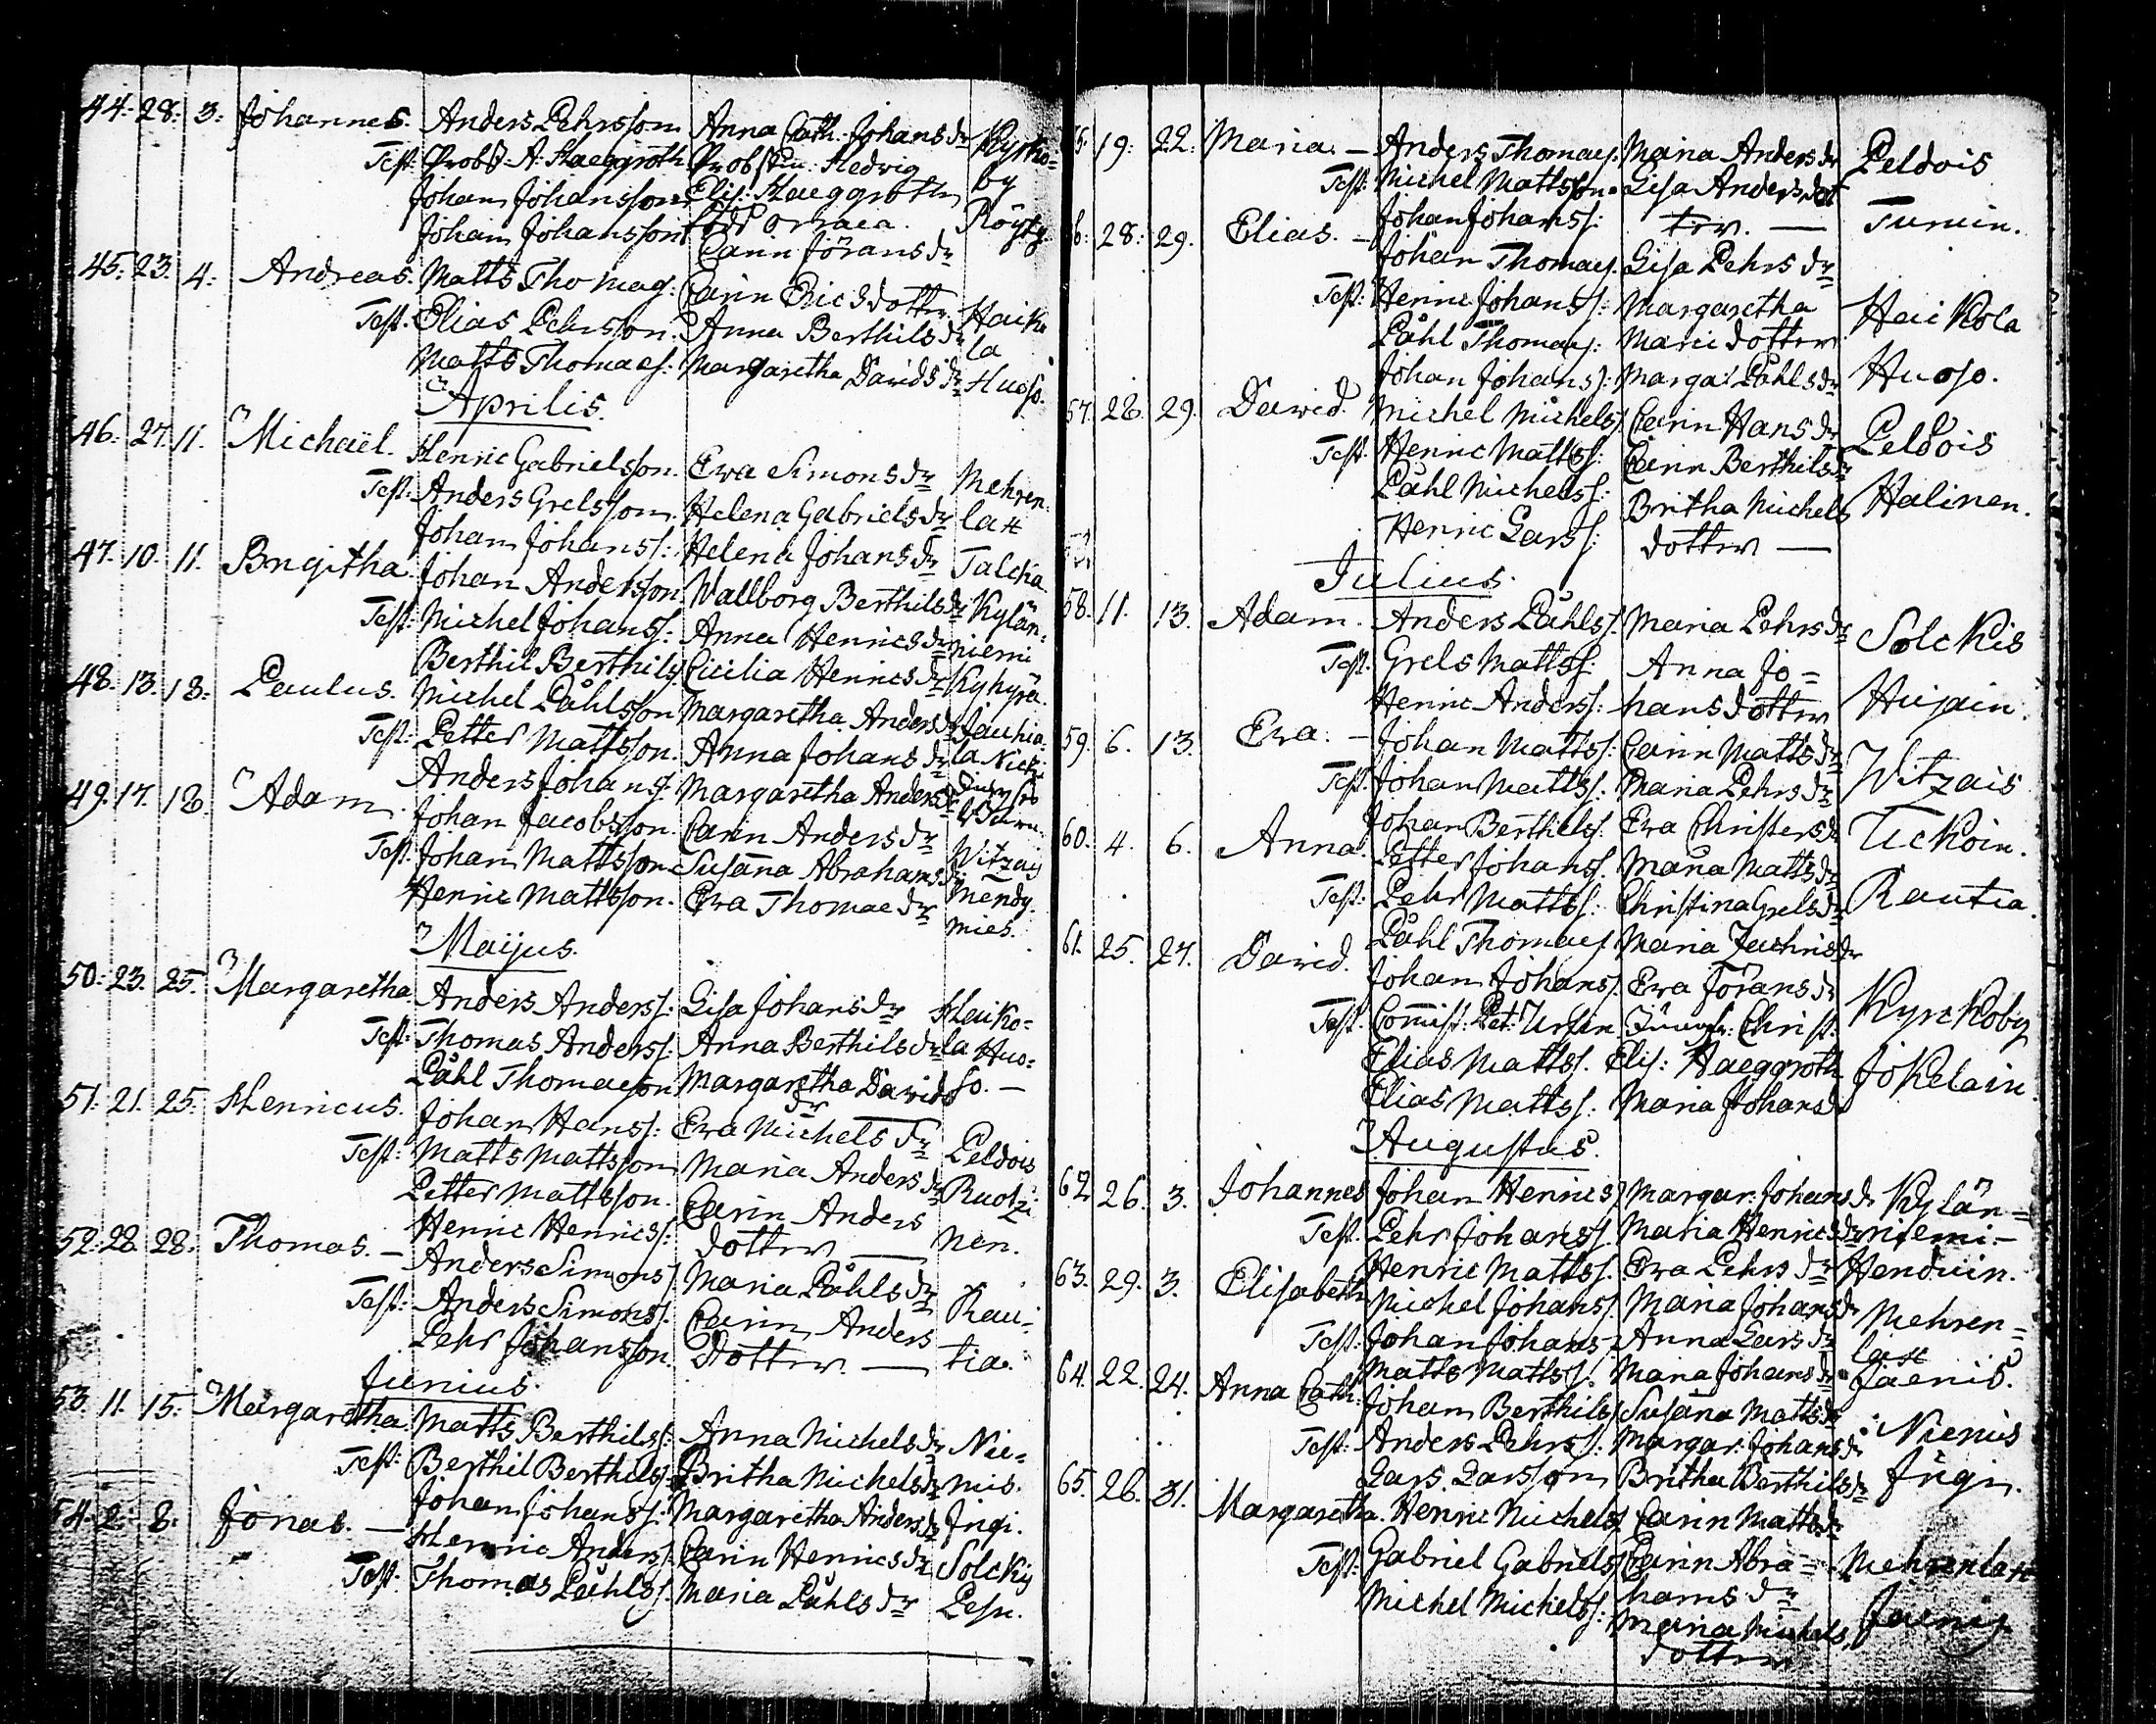 44. 28. 3. Johannes. Anders Pehrsson Anna Cath. Johans dr Kyrko-
Test. Probst A. Haeggroth Probstin Hedwig by
Johan Johansson Elis: Haeggroth Röyty
Johan Johansson född Orraea.
Carin Jörans dr
45. 23. 4. Andreas. Matts Thomaes. Carin Ericsdotter Haiko
Test. Elias Pehrsson. Anna Berthils dr la
Matts Thomaes. Margaretha Davids dr Huoso.
Aprilis.
46. 27. 11. Michaël. Henric Gabrielsson. Ewa Simons dr Mehren
Test: Anders Grelsson. Helena Gabriels dr latt
Johan Johanss: Helena Johans dr Talcka
47. 10. 11. Brigitha Johan Andersson Wallborg Berthils dr Kylän-
Test: Michel Johanss: Anna Henrics dr niemi
Berthil Berthils: Cicilia Henrics dr Kyhyrä
48. 13. 18. Paulus. Michel Påhlsson Margaretha Anders dr Jauhia-
Test: Petter Mattsson. Anna Johans dr la
Anders Johans: Margaretha Anders dr
49. 17. 18. Adam. Johan Jacobsson Carin Anders dr
Test. Johan Mattsson Susana Abrahams dr Witzais
Henric Mattsson. Ewa Thomae dr Mendy-
mies.
Maijus.
50. 23. 25. Margaretha Anders Anderss: Lisa Johans dr Haiko-
Test: Thomas Anderss: Anna Berthils dr la Huo-
Påhl Thomaeson Margaretha Davids so. —
dr
51. 21. 25. Henricus. Johan Hanss: Ewa Michels dr
Test: Matts Mattsson Maria Anders dr Peldois
Petter Mattsson. Carin Anders Ruotzi
Henric Henricss: dotter — nen.
52. 28. 28. Thomas. — Anders Simonss Maria Påhls dr
Test: Anders Simonss. Carin Anders Rau-
Pehr Johansson. Dotter — tia.
Junius.
53. 11. 15. Margaretha. Matts Berthilss: Anna Michels dr Nie-
Test: Berthil Berthilss. Britha Michels dr mis.
Johan Johanss: Margaretha Anders dr Jngi.
54. 2. 8. Jonas. — Henric Anderss. Carin Henrics dr Solckis
Test. Thomas Påhlss. Maria Påhls dr Pesu.
55. 19. 22. Maria. — Anders Thomaes. Maria Anders dr Peldois
Test: Michel Mattsson. Lisa Andersdot
Johan Johanss: ter. — Tumin.
56. 28. 29. Elias. — Johan Thomaes. Lisa Pehrs dr
Test: Henric Johanss: Margaretha Haikola
Påhl Thomaes: Maricdotter
Johan Johanss: Margar Påhls dr Huoso.
57. 28. 29. Dawid. Michel Michels Carin Hans dr Peldois
Test. Henric Mattss: Carin Berthils dr
Påhl Michelss: Britha Michels Halinen.
Henric Larss: dotter —
Julius.
58. 11. 13. Adam. Anders Påhls. Maria Pehrs dr Solckis
Test. Grels Mattss: Anna Jo-
Henric Anderss: hansdotter Hujain.
59. 6. 13. Ewa. — Johan Mattss: Carin Matts dr Witzais
Test. Johan Mattss. Maria Pehrs dr
Johan Berthels: Ewa Christers dr Uckoin.
60. 4. 6. Anna. Petter Johanss. Maria Matts dr
Test: Pehr Mattss: Christina Grels dr Rautia.
Påhl Thomaes Maria Zachris dr
61. 25. 27. Dawid. Johan Johans. Ewa Jörans dr
Test. Commiss: Pet: Ursin Jungfr. Christ: Kyrckoby
Elias Mattss. Elis: Haeggroth Jokelain.
Elias Mattss: Maria Johans dr
Augustus.
62. 26. 3. Johannes Johan Henrics Margar. Johans dr Kylän-
Test. Pehr Johanss. Maria Henrics dr niemi.—
Henric Mattss. Ewa Pehrs dr Henduin.
63. 29. 3. Elisabeth Michel Johans. Maria Johans dr Mehren-
Test: Johan Johans Anna Lars dr latt
Matts Mattss. Maria Johans dr Jaenis.
64. 22. 24. Anna Cath: Johan Berthils Susana Matts dr
Test: Anders Pehrss: Margar: Johans dr Niemis
Lars Larsson Britha Berthils dr Jngin.
65. 26. 31. Margaretha. Henric Michels Carin Matts dr
Test: Gabriel Gabriels Carin Abra- Mehrenlatt
Michel Michelss: hams dr
Maria Michels Jaenis
dotter